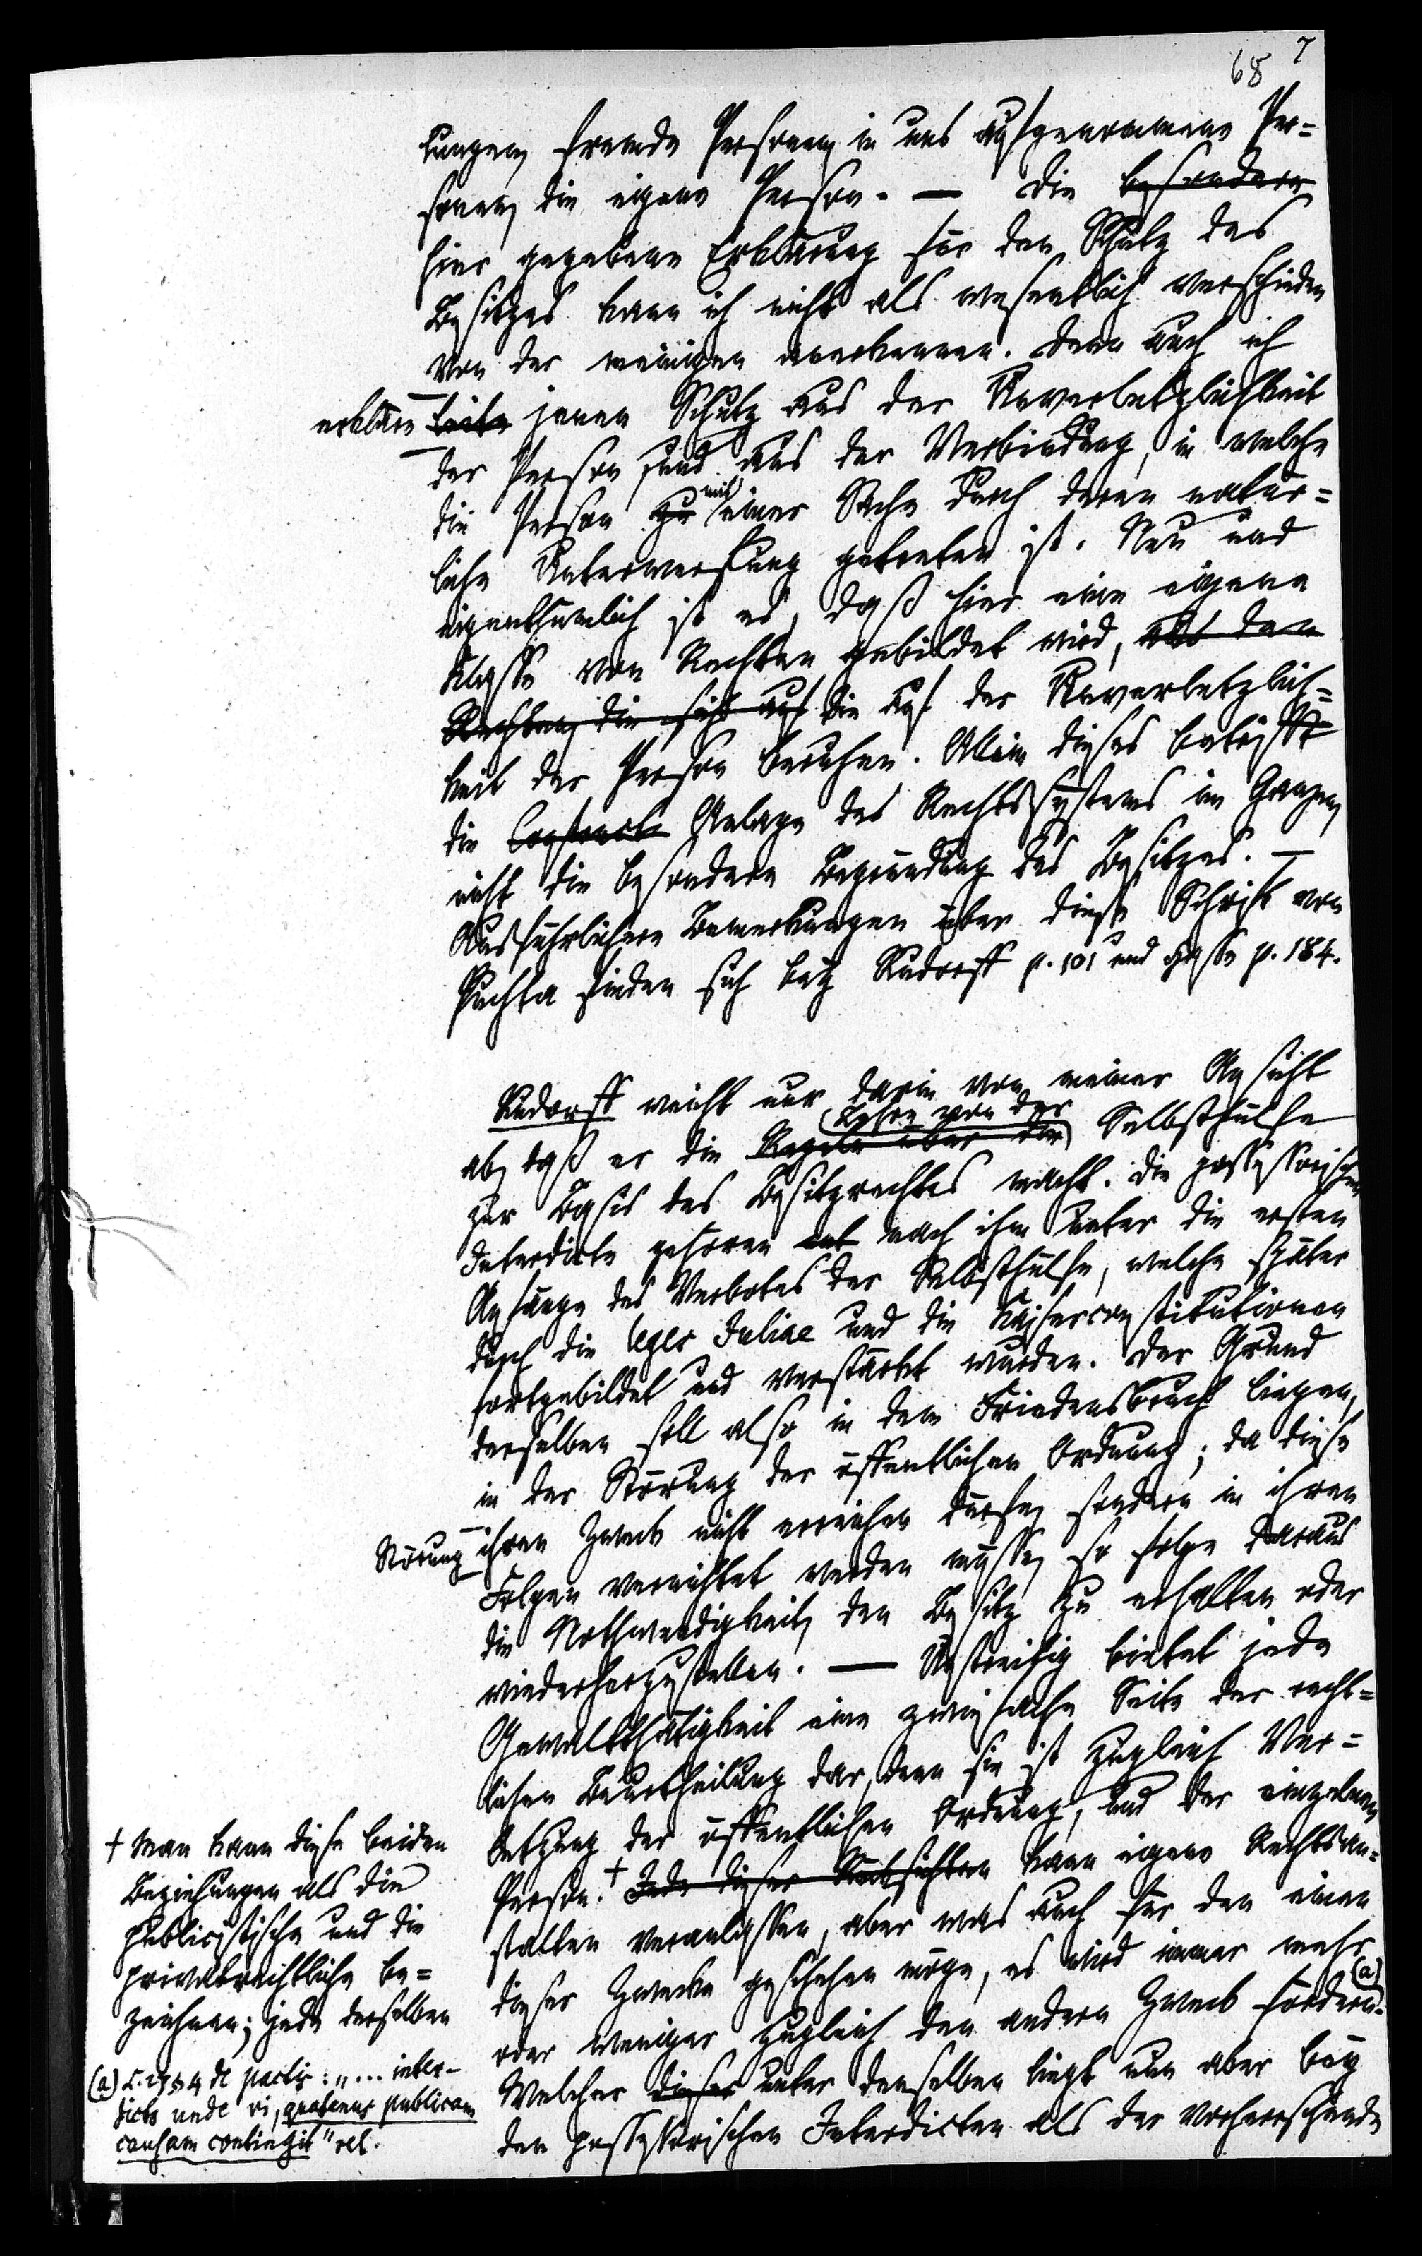 68 7
tungen, fremde Personen, in uns aufgenommene Per=
sonen, die eigene Person. — Die besondere
hier gegebene Erklärung für den Schutz des
Besitzes kann ich nicht als wesentlich verschieden
von der meinigen anerkennen. Denn auch ich
erkläre leite jenen Schutz aus der Unverletzlichkeit
der Person, und aus der Verbindung, in welche
mit
die Person zu einer Sache durch deren natür=
liche Unterwerfung getreten ist. Neu und
eigenthümlich ist es, daß hier eine eigene
Klasse von Rechten gebildet wird, den
Rechten, die sich auf die auf der Unverletzlich=
keit der Person beruhen. Allein dieses betrifft
die Anlage des Rechtssystems im Ganzen,
nicht die besondere Begründung des Besitzes. —
Ausführlichere Bemerkungen über diese Schrift von
Puchta finden sich bey Rudorff p. 101 und Hasse p. 184.
Rudorff weicht nur darin von meiner Ansicht
Lehre von der
ab, daß er die Regeln über die Selbsthülfe
zur Basis des Besitzrechtes macht. Die possessorischen
Interdicte gehören nach ihm unter die ersten
Anfänge des Verbotes der Selbsthülfe, welche später
durch die leges Juliae und die Kaiserconstitutionen
fortgebildet und verstärkt wurden. Der Grund
derselben soll also in dem Friedensbruch liegen,
in der Störung der öffentlichen Ordnung; da diese
Störung ihren Zweck nicht erreichen dürfe, sondern in ihren
Folgen vernichtet werden müsse, so folge daraus
die Nothwendigkeit, den Besitz zu erhalten oder
wiederherzustellen. — Unstreitig bietet jede
Gewaltthätigkeit eine zweifache Seite der recht=
lichen Beurtheilung dar, denn sie ist zugleich Ver=
letzung der öffentlichen Ordnung, und der einzelnen
Person.+ Jede dieser Rücksichten kann eigene Rechtsan=
stalten veranlassen, aber was auch für den einen
dieser Zwecke geschehen möge, es wird immer mehr
oder weniger zugleich den andern Zweck fördern. (a)
Welcher dieser unter denselben liegt nun aber bey
den possessorischen Interdicten als der vorherrschende
+ Man kann diese beiden
Beziehungen als die
publicistische und die
privatrechtliche be=
zeichnen; jede derselben
(a) L. 27 § 4 de pactis: „... inter-
dicto unde vi, quatenus publicam
causam contingit" rel.